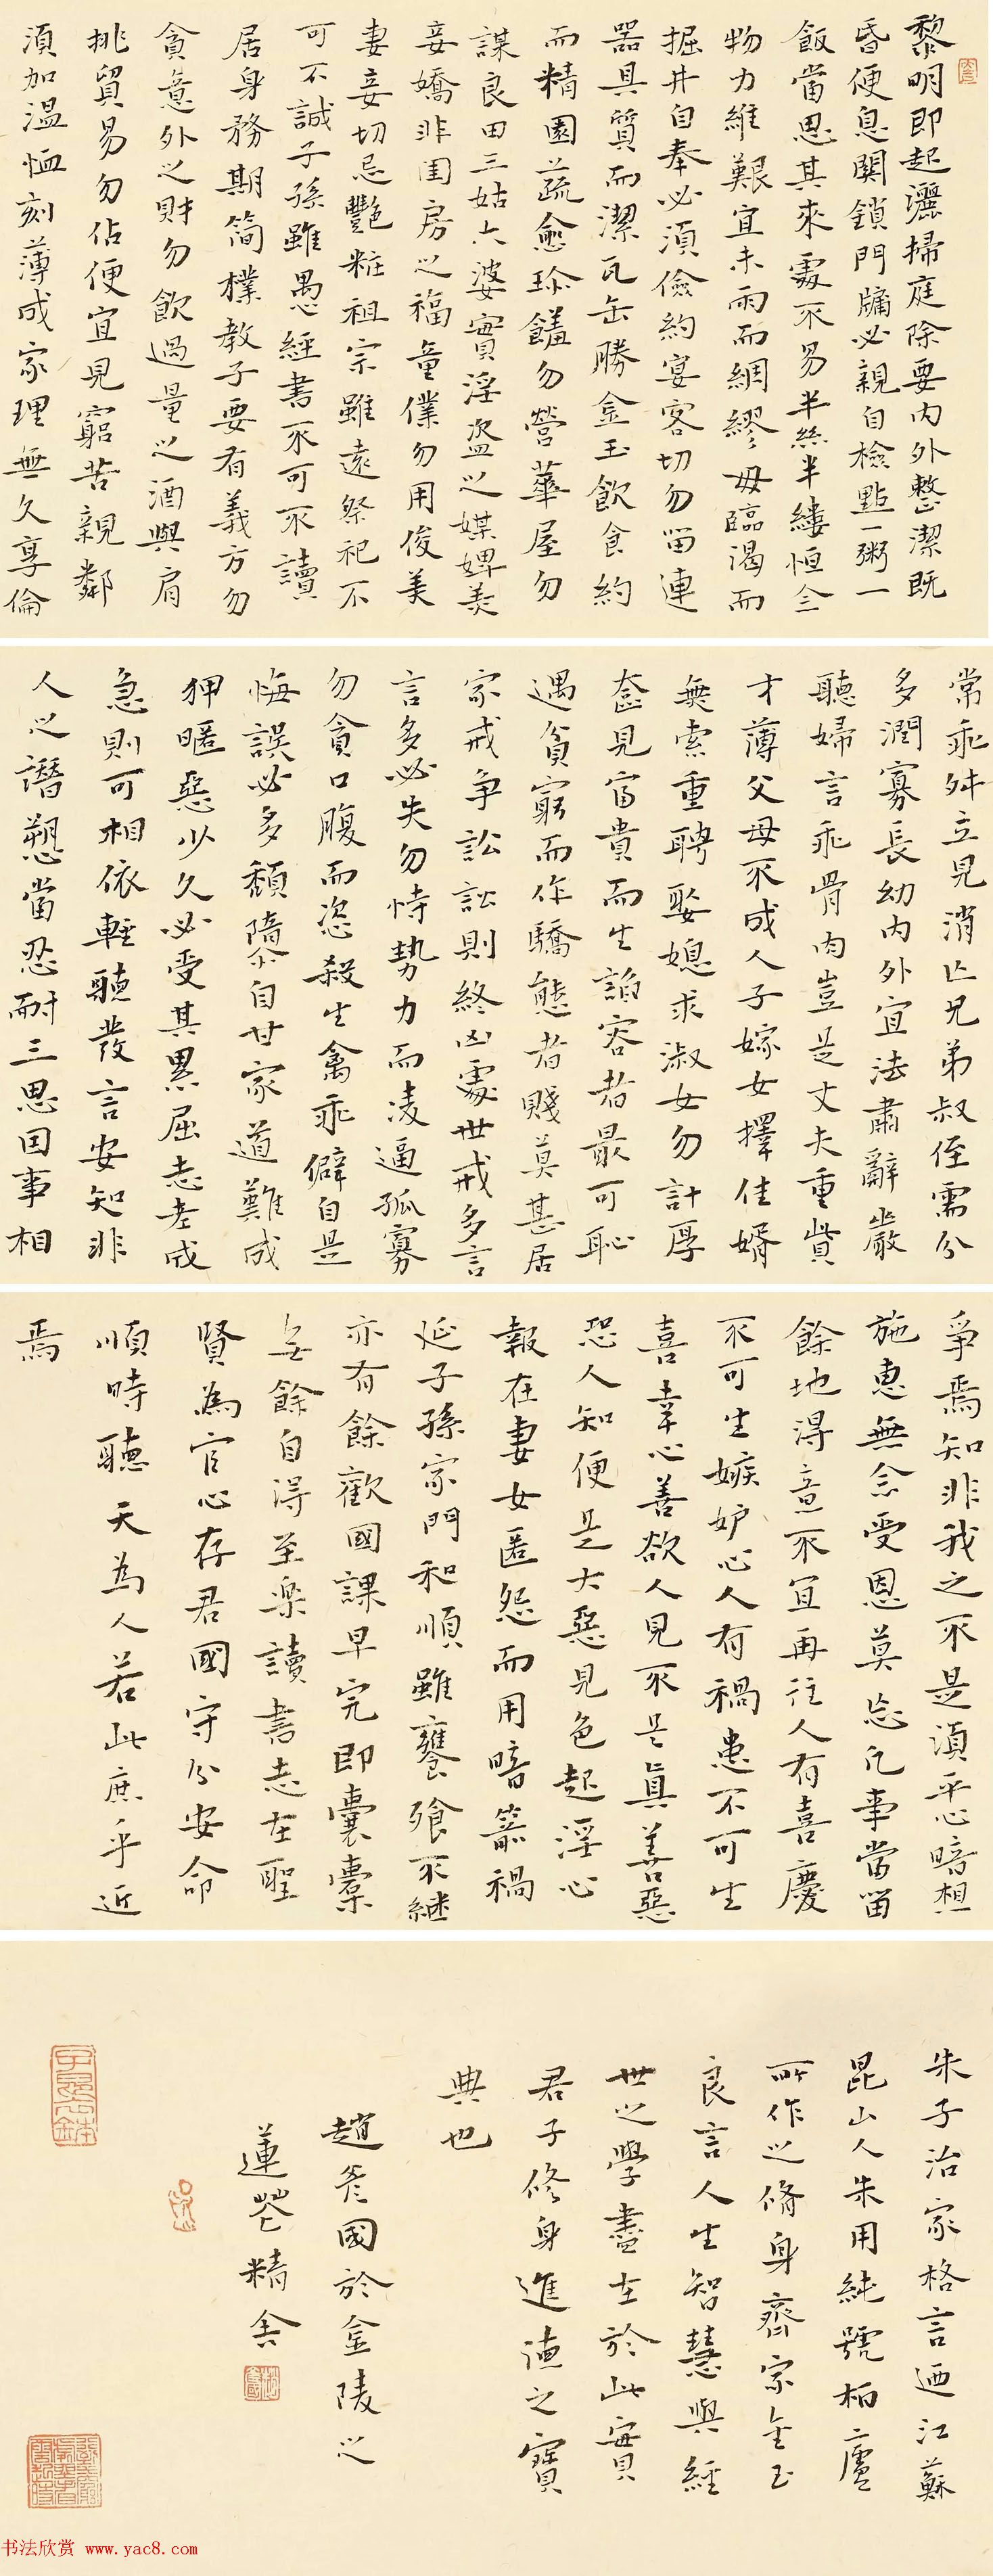 黎明即起灑掃庭除要内外整潔既
昏便息関鎖門牗必親自檢點一粥一
飯當思其來處不易半絲半縷恒念
物力維艱宜未雨而綢繆毋臨渴而
掘井自奉必須儉約宴客切勿留連
器具質而潔瓦缶勝金玉飲食約
而精園蔬愈珍饈勿營華屋勿
謀良田三姑六婆實淫盜之媒婢美
妾嬌非閨房之福童僕勿用俊美
妻妾切忌艷粧祖宗雖遠祭祀不
可不誠子孫雖愚經書不可不讀
居身務期简樸教子要有義方勿
貪意外之財勿飲過量之酒與肩
挑貿易勿佔便宜見窮苦親鄰
須加温恤刻薄成家理無久享倫
常乖舛立見消亡兄弟叔侄需分
多潤寡長幼内外宜法肅辭嚴
聽婦言乖骨肉豈是丈夫重貲
才薄父母不成人子嫁女擇佳婿
無索重聘娶媳求淑女勿計厚
奩見富貴而生諂容者最可恥
遇貧窮而作驕態者賤莫甚居
家戒争訟訟則終凶處世戒多言
言多必失勿恃勢力而凌逼孤寡
勿貪口腹而恣殺生禽乖僻自是
悔誤必多頹隳自甘家道難成
狎暱惡少久必受其累屈志老成
急則可相依輕聽發言安知非
人之譖愬當忍耐三思因事相
爭焉知非我之不是須平心暗想
施惠無念受恩莫忘凡事當留
餘地得意不宜再往人有喜慶
不可生嫉妒心人有禍患不可生
喜幸心善欲人見不是真善惡
恐人知便是大惡見色起淫心
報在妻女匿怨而用暗箭禍
延子孫家門和順雖饔飧不繼
亦有餘歡國課早完即囊橐
無餘自得至樂讀書志在聖
賢為官心存君國守分安命
順時聽天為人若此庶乎近
焉
朱子治家格言迺江蘇
昆山人朱用純號柏廬
所作之脩身齊家金玉
良言人生智慧與經
世之學盡在於此實
君子修身進德之寶
典也
趙彥國於金陵之
蓮花精舍
书法欣赏 www.yac8.com